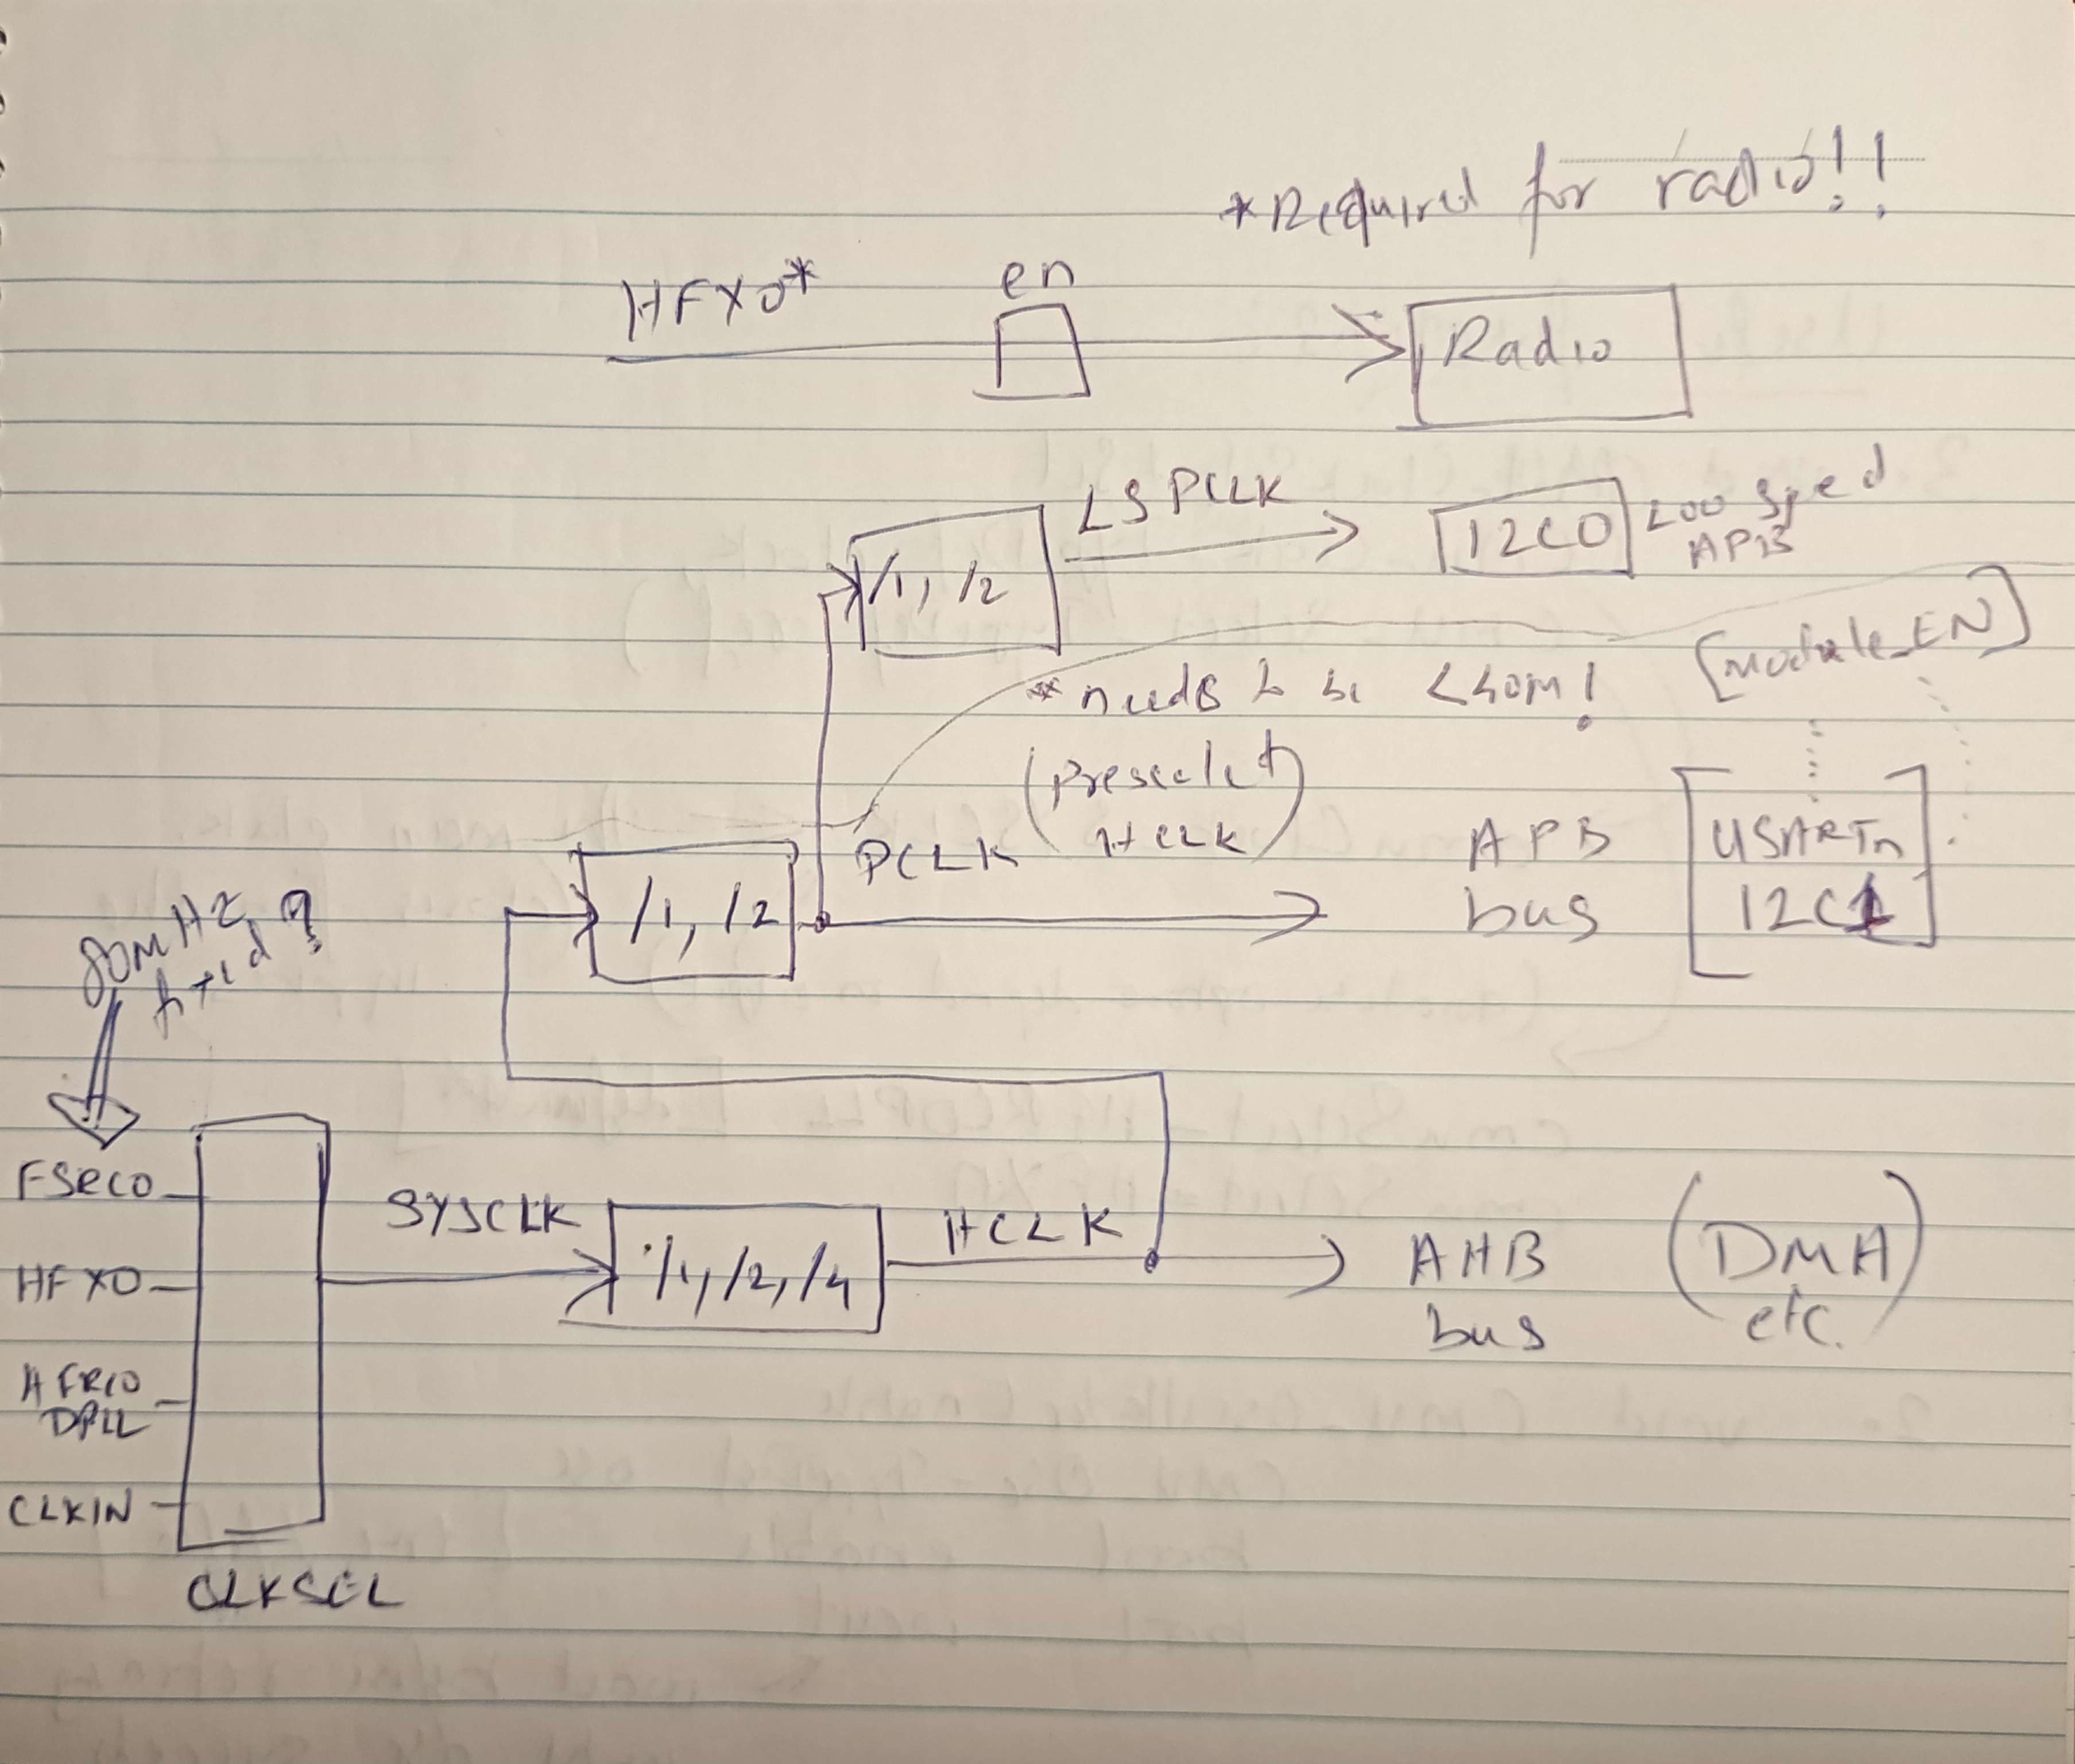 *Required for radio!!
HFXO*
en
Radio
LSPCLK
/1, /2
I2C0
Low Speed
APB
[module_EN]
*needs to be <40M!
(Prescaled
HCLK)
PCLK
/1, /2
APB
bus
USARTn
I2C1
80MHz,
fixed?
FSRCO
HFXO
HFRCO
DPLL
CLKIN
CLKSEL
SYSCLK
/1, /2, /4
HCLK
AHB
bus
(DMA
etc.)